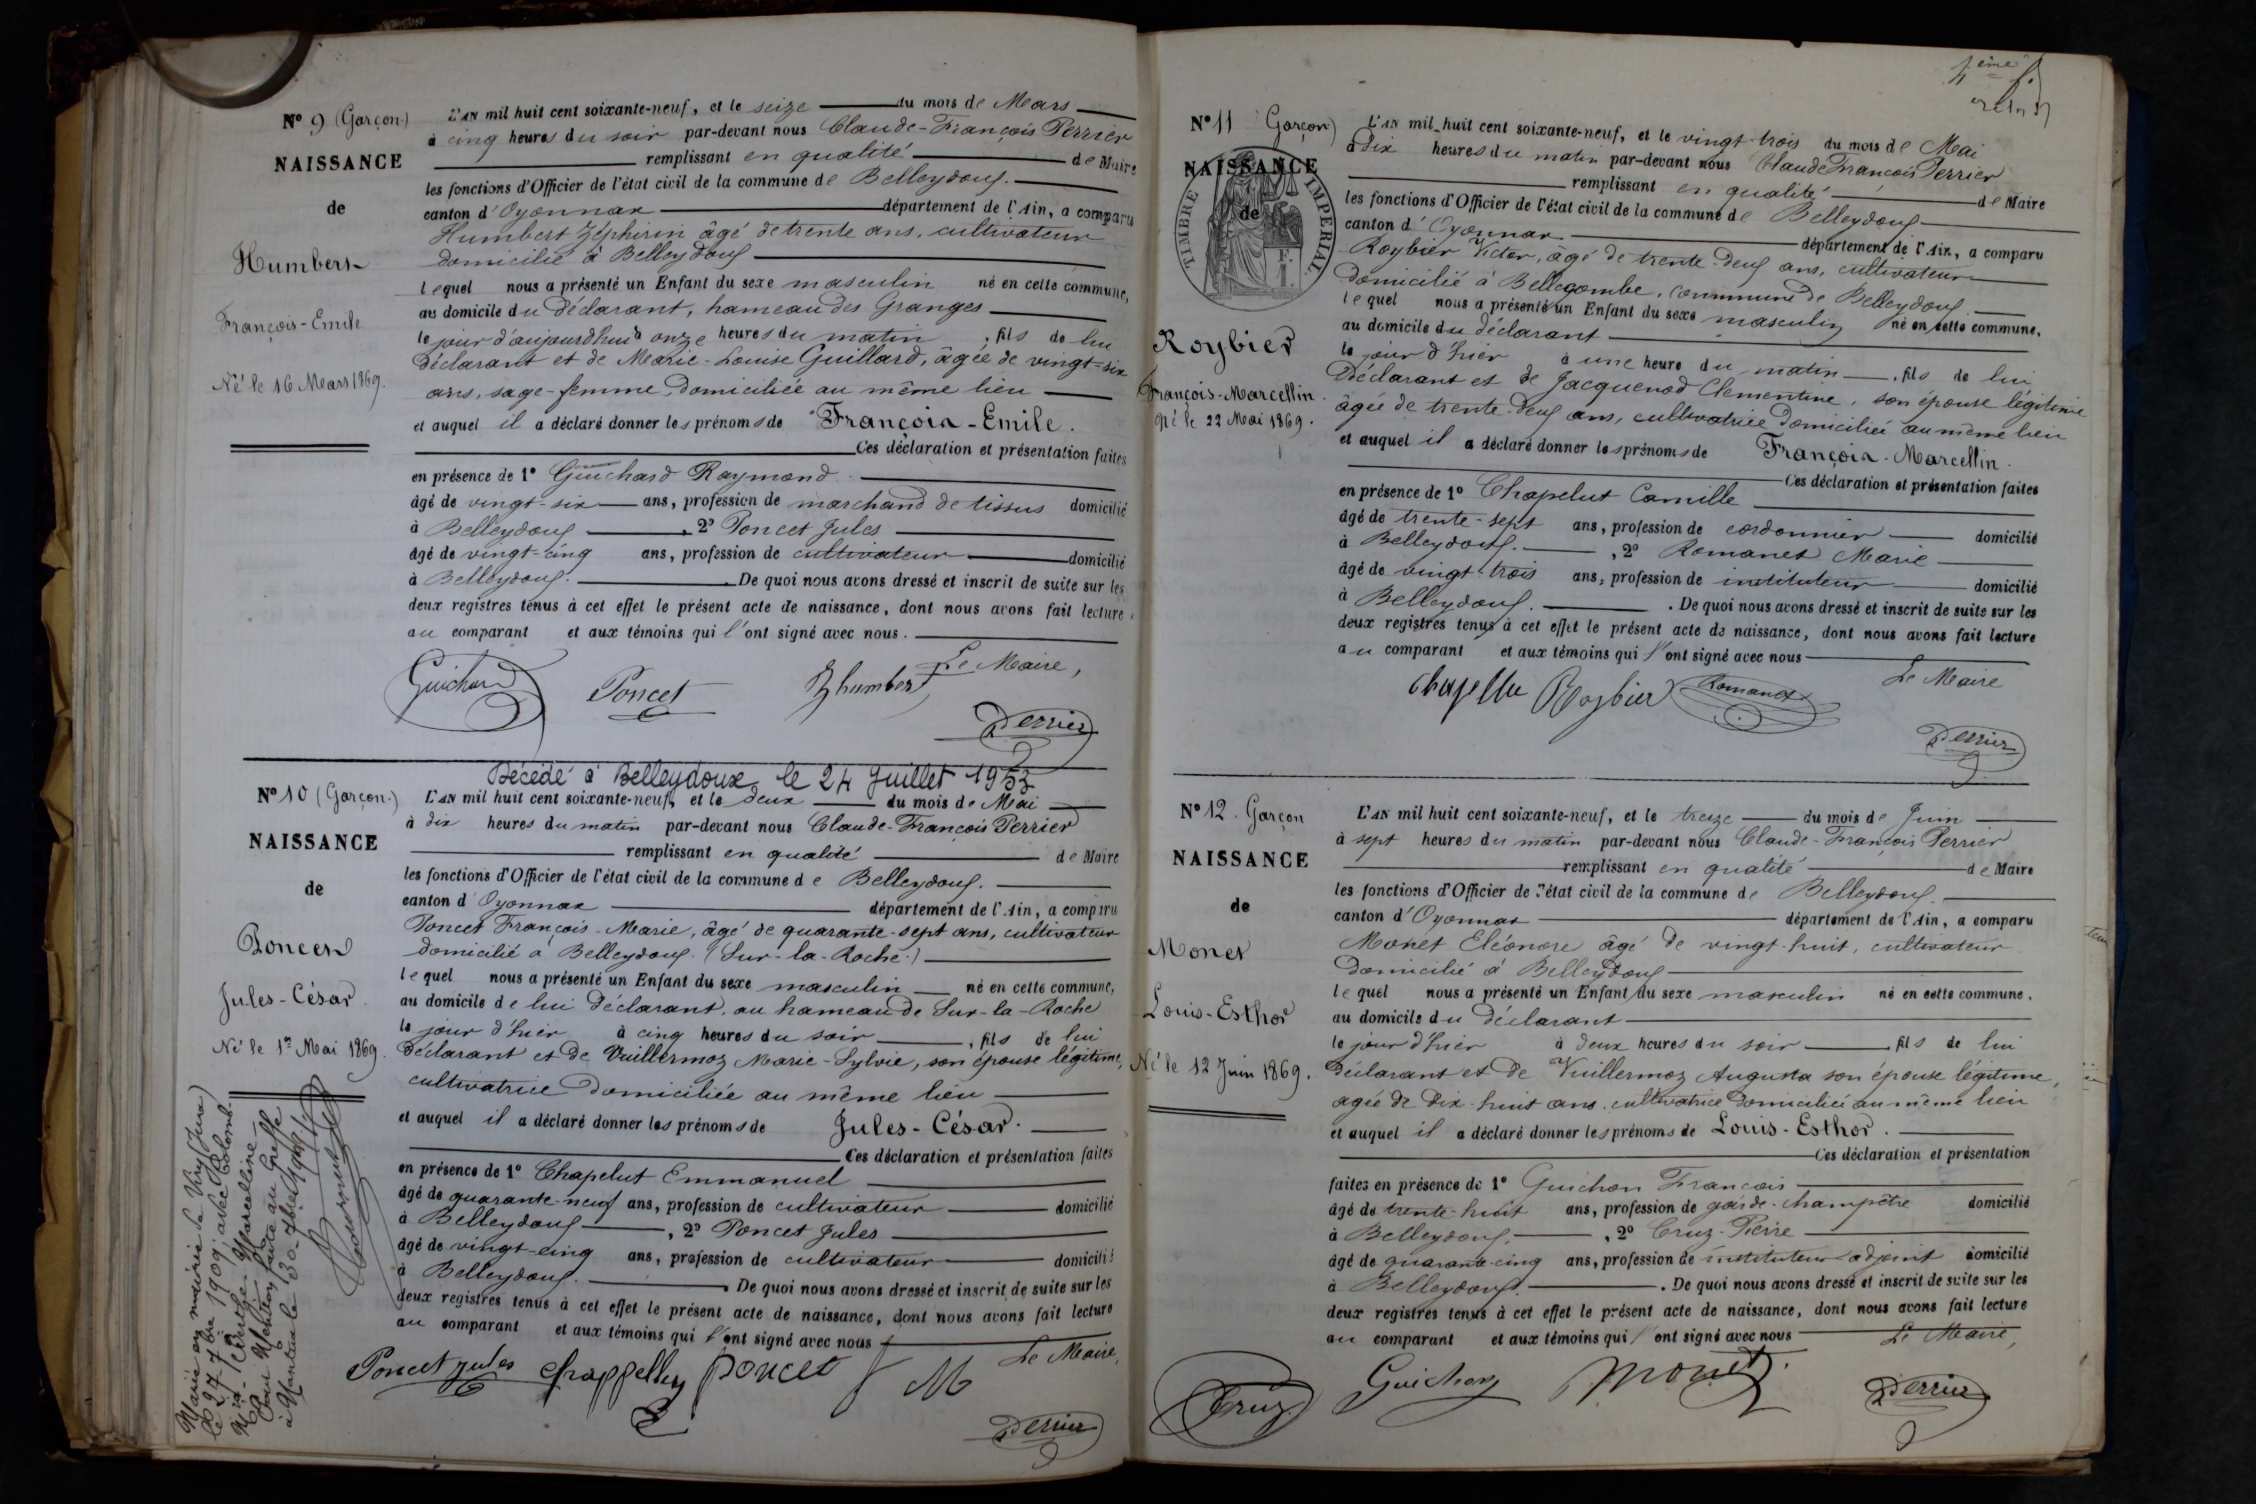 Nº 9 (Garçon)
NAISSANCE
de
Humbert
François-Emile
Né le 16 Mars 1869.
L'AN mil huit cent soixante-neuf, et le seize du mois de Mars
à cinq heures du soir par-devant nous Claude-François Perrier
remplissant en qualité de Maire
les fonctions d'Officier de l'état civil de la commune de Belleydoux.
canton d'Oyonnax département de l'Ain, a comparu
Humbert Zéphirin âgé de trente ans, cultivateur
domicilié à Belleydoux
lequel nous a présenté un Enfant du sexe masculin né en cette commune,
au domicile du déclarant, hameau des Granges
le jour d'aujourd'hui à onze heures du matin, fils de lui
déclarant et de Marie-Louise Guillard, âgée de vingt-six
ans, sage-femme, domiciliée au même lieu
et auquel il a déclaré donner les prénoms de François-Emile.
Ces déclaration et présentation faites
en présence de 1º Guichard Raymond
âgé de vingt-six ans, profession de marchand de tissus domicilié
à Belleydoux, 2º Poncet Jules
âgé de vingt-cinq ans, profession de cultivateur domicilié
à Belleydoux. De quoi nous avons dressé et inscrit de suite sur les
deux registres tenus à cet effet le présent acte de naissance, dont nous avons fait lecture
au comparant et aux témoins qui l'ont signé avec nous.
Le Maire,
Guichard Poncet Zhumbert
Perrier
Décédé à Belleydoux le 24 Juillet 1953
Nº 10 (Garçon)
NAISSANCE
de
Poncet
Jules-César
Né le 1er Mai 1869.
Marié en mairie de Viry (Jura)
le 27 7bre 1909, avec Colomb
Marcelline
Pour Mention faite au Greffe
à Nantua le 30 7bre 1909
L'AN mil huit cent soixante-neuf, et le deux du mois de Mai
à dix heures du matin par-devant nous Claude-François Perrier
remplissant en qualité de Maire
les fonctions d'Officier de l'état civil de la commune de Belleydoux.
canton d'Oyonnax département de l'Ain, a comparu
Poncet François-Marie, âgé de quarante-sept ans, cultivateur
domicilié à Belleydoux (Sur-la-Roche)
lequel nous a présenté un Enfant du sexe masculin né en cette commune,
au domicile de lui déclarant, au hameau de Sur-la-Roche
le jour d'hier à cinq heures du soir, fils de lui
déclarant et de Vuillermoz Marie-Sylvie, son épouse légitime,
cultivatrice domiciliée au même lieu
et auquel il a déclaré donner les prénoms de Jules-César.
Ces déclaration et présentation faites
en présence de 1º Chapelut Emmanuel
âgé de quarante-neuf ans, profession de cultivateur domicilié
à Belleydoux, 2º Poncet Jules
âgé de vingt-cinq ans, profession de cultivateur domicilié
à Belleydoux. De quoi nous avons dressé et inscrit de suite sur les
deux registres tenus à cet effet le présent acte de naissance, dont nous avons fait lecture
au comparant et aux témoins qui l'ont signé avec nous
Le Maire,
Poncet jules chappelluy poncet f M
Perrier
4ème f.
Nº 11 Garçon)
NAISSANCE
de
TIMBRE IMPERIAL
Roybier
François-Marcellin.
Né le 22 Mai 1869.
L'AN mil huit cent soixante-neuf, et le vingt-trois du mois de Mai
à dix heures du matin par-devant nous Claude François Perrier
remplissant en qualité de Maire
les fonctions d'Officier de l'état civil de la commune de Belleydoux
canton d'Oyonnax département de l'Ain, a comparu
Roybier Victor, âgé de trente-deux ans, cultivateur
domicilié à Bellecombe, commune de Belleydoux
lequel nous a présenté un Enfant du sexe masculin né en cette commune.
au domicile du déclarant
le jour d'hier à une heure du matin, fils de lui
Déclarant et de Jacquenod Clementine, son épouse légitime
âgée de trente-deux ans, cultivatrice domiciliée au même lieu
et auquel il a déclaré donner les prénoms de François-Marcellin.
Ces déclaration et présentation faites
en présence de 1º Chapelut Camille
âgé de trente-sept ans, profession de cordonnier domicilié
à Belleydoux., 2º Romanet Marie
âgé de vingt-trois ans, profession de instituteur domicilié
à Belleydoux. De quoi nous avons dressé et inscrit de suite sur les
deux registres tenus à cet effet le présent acte de naissance, dont nous avons fait lecture
au comparant et aux témoins qui l'ont signé avec nous
Le Maire
Roybier Romanet
Perrier
Nº 12. Garçon
NAISSANCE
de
Monet
Louis-Esthor
Né le 12 Juin 1869.
L'AN mil huit cent soixante-neuf, et le treize du mois de Juin
à sept heures du matin par-devant nous Claude-François Perrier
remplissant en qualité de Maire
les fonctions d'Officier de l'état civil de la commune de Belleydoux.
canton d'Oyonnax département de l'Ain, a comparu
Monet Eléonore âgé de vingt-huit, cultivateur
domicilié à Belleydoux
lequel nous a présenté un Enfant du sexe masculin né en cette commune.
au domicile du déclarant
le jour d'hier à deux heures du soir fils de lui
déclarant et de Vuillermoz Augusta son épouse légitime,
agée de dix-huit ans, cultivatrice domiciliée au même lieu
et auquel il a déclaré donner les prénoms de Louis-Esthor.
Ces déclaration et présentation
faites en présence de 1º Guichon François
âgé de trente-huit ans, profession de garde-champêtre domicilié
à Belleydoux, 2º Cruz-Pierre
âgé de quarante-cinq ans, profession de instituteur adjoint domicilié
à Belleydoux. De quoi nous avons dressé et inscrit de suite sur les
deux registres tenus à cet effet le présent acte de naissance, dont nous avons fait lecture
au comparant et aux témoins qui l'ont signé avec nous
Le Maire,
Cruz Guichon Monet
Perrier